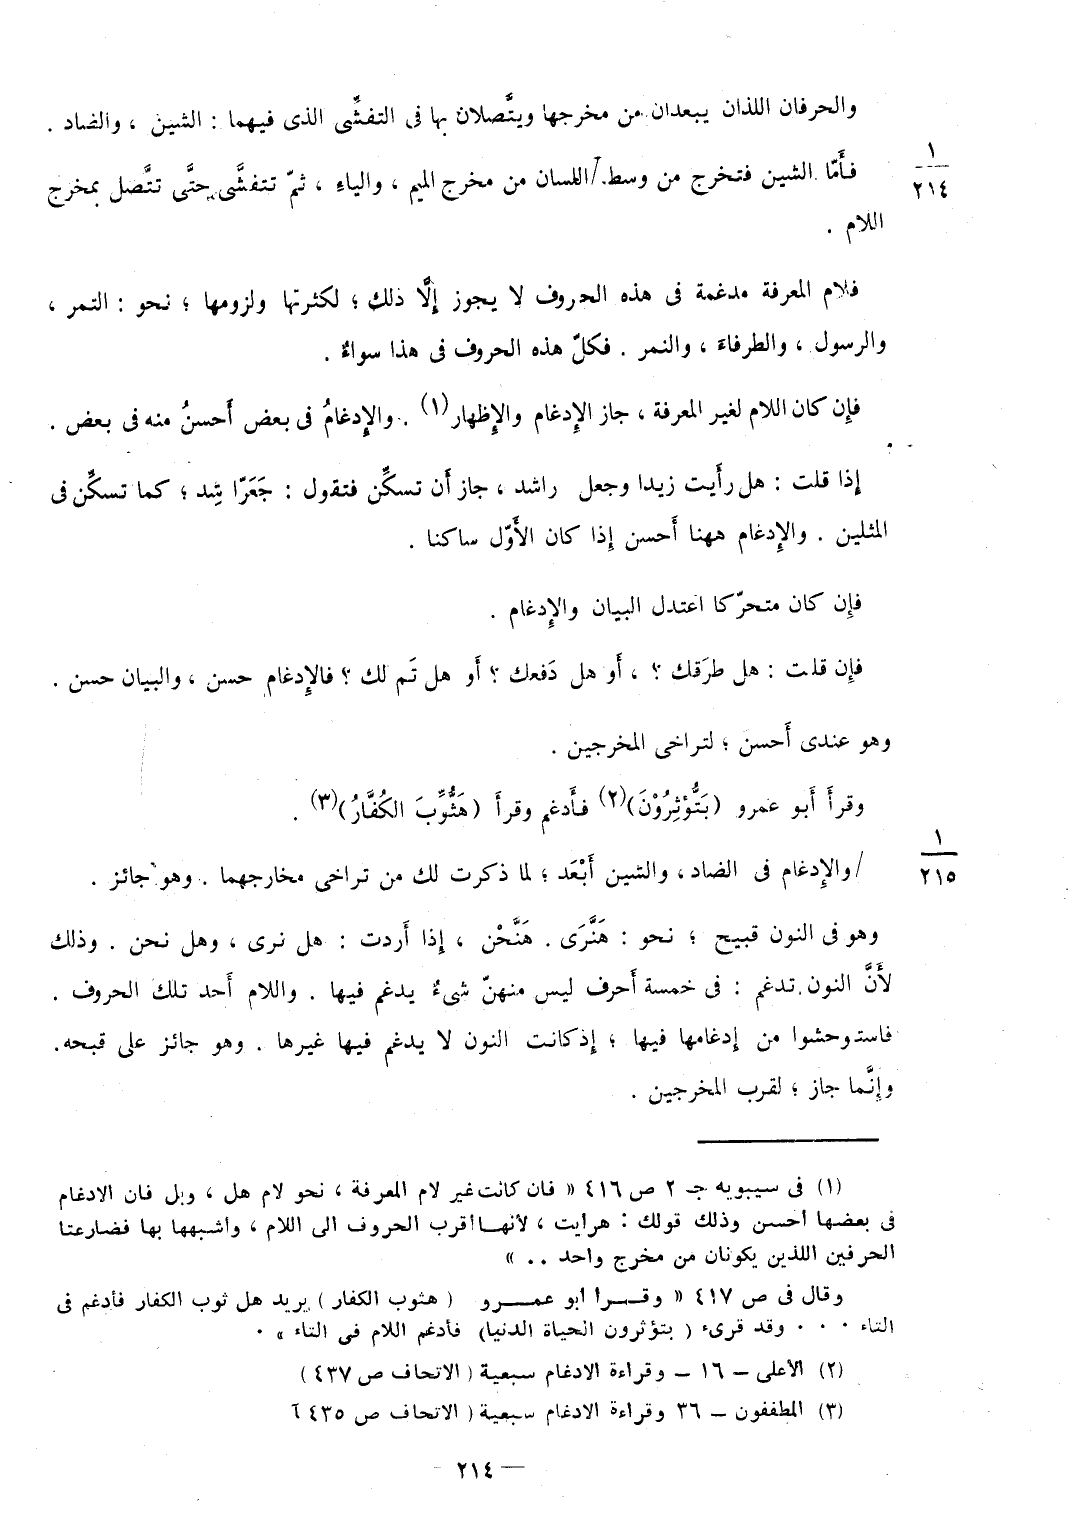 والحرفان اللذان يبعدان من مخرجها ويتَّصلان بها فى التفشِّى الذى فيهما : الشين ، والضاد .
١
٢١٤
فأَمّا الشين فتخرج من وسط /اللسان من مخرج الميم ، والياءِ ، ثمّ تتفشَّى حتَّى تتَّصل بمخرج
اللام .
فلام المعرفة مدغمة فى هذه الحروف لا يجوز إلَّا ذلك ؛ لكثرتها ولزومها ؛ نحو : التمر ،
والرسول ، والطرفاءَ ، والنمر . فكلّ هذه الحروف فى هذا سواءٌ .
فإِن كان اللام لغير المعرفة ، جاز الإِدغام والإِظهار(١) . والإِدغامُ فى بعض أَحسنُ منه فى بعض .
إذا قلت : هل رأَيت زيدا وجعل راشد ، جاز أَن تسكِّن فتقول : جَعَرّا شِد ؛ كما تسكِّن فى
المثلين . والإِدغام ههنا أَحسن إِذا كان الأَوّل ساكنا .
فإِن كان متحرّكا اعتدل البيان والإِدغام .
فإِن قلت : هل طرَقك ؟ ، أَو هل دَفعك ؟ أَو هل تَم لك ؟ فالإِدغام حسن ، والبيان حسن .
وهو عندى أَحسن ؛ لتراخى المخرجين .
وقرأَ أَبو عمرو (بَتُّؤْثِرُوْنَ)(٢) فأَدغم وقرأَ (هَثُّوِّبَ الكُفَّارُ)(٣) .
١
٢١٥
/والإِدغام فى الضاد ، والشين أَبْعَد ؛ لما ذكرت لك من تراخى مخارجهما . وهو جائز .
وهو فى النون قبيح ؛ نحو : هَنَّرَى . هَنَّحْن ، إِذا أَردت : هل نرى ، وهل نحن . وذلك
لأَنَّ النون تدغم : فى خمسة أَحرف ليس منهنّ شىءٌ يدغم فيها . واللام أَحد تلك الحروف .
فاستوحشوا من إِدغامها فيها ؛ إِذ كانت النون لا يدغم فيها غيرها . وهو جائز على قبحه.
وإِنَّما جاز ؛ لقرب المخرجين .
(١) فى سيبويه جـ ٢ ص ٤١٦ « فان كانت غير لام المعرفة ، نحو لام هل ، وبل فان الادغام
فى بعضها أحسن وذلك قولك : هرأيت ، لأنها أقرب الحروف الى اللام ، وأشبهها بها فضارعتا
الحرفين اللذين يكونان من مخرج واحد .. »
وقال فى ص ٤١٧ « وقرا ابو عمرو ( هثوب الكفار ) يريد هل ثوب الكفار فأدغم فى
الثاء ٠٠٠ وقد قرىء ( بتؤثرون الحياة الدنيا) فأدغم اللام فى التاء » ٠
(٢) الأعلى – ١٦ – وقراءة الادغام سبعية ( الاتحاف ص ٤٣٧ )
(٣) المطففون – ٣٦ وقراءة الادغام سبعية ( الاتحاف ص ٤٣٥ )
– ٢١٤ –